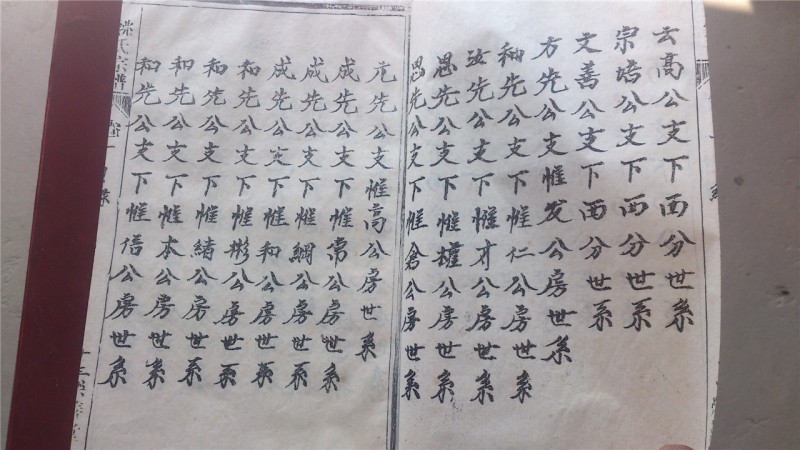 云高公支下西分世系
宗培公支下西分世系
文善公支下西分世系
方先公支下惟发公房世系
和先公支下惟仁公房世系
汝先公支下惟才公房世系
思先公支下惟權公房世系
思先公支下惟倉公房世系
范先公支下惟高公房世系
成先公支下惟常公房世系
成先公支下惟綱公房世系
成先公支下惟和公房世系
和先公支下惟彬公房世系
和先公支下惟緒公房世系
和先公支下惟本公房世系
和先公支下惟信公房世系
氏宗譜